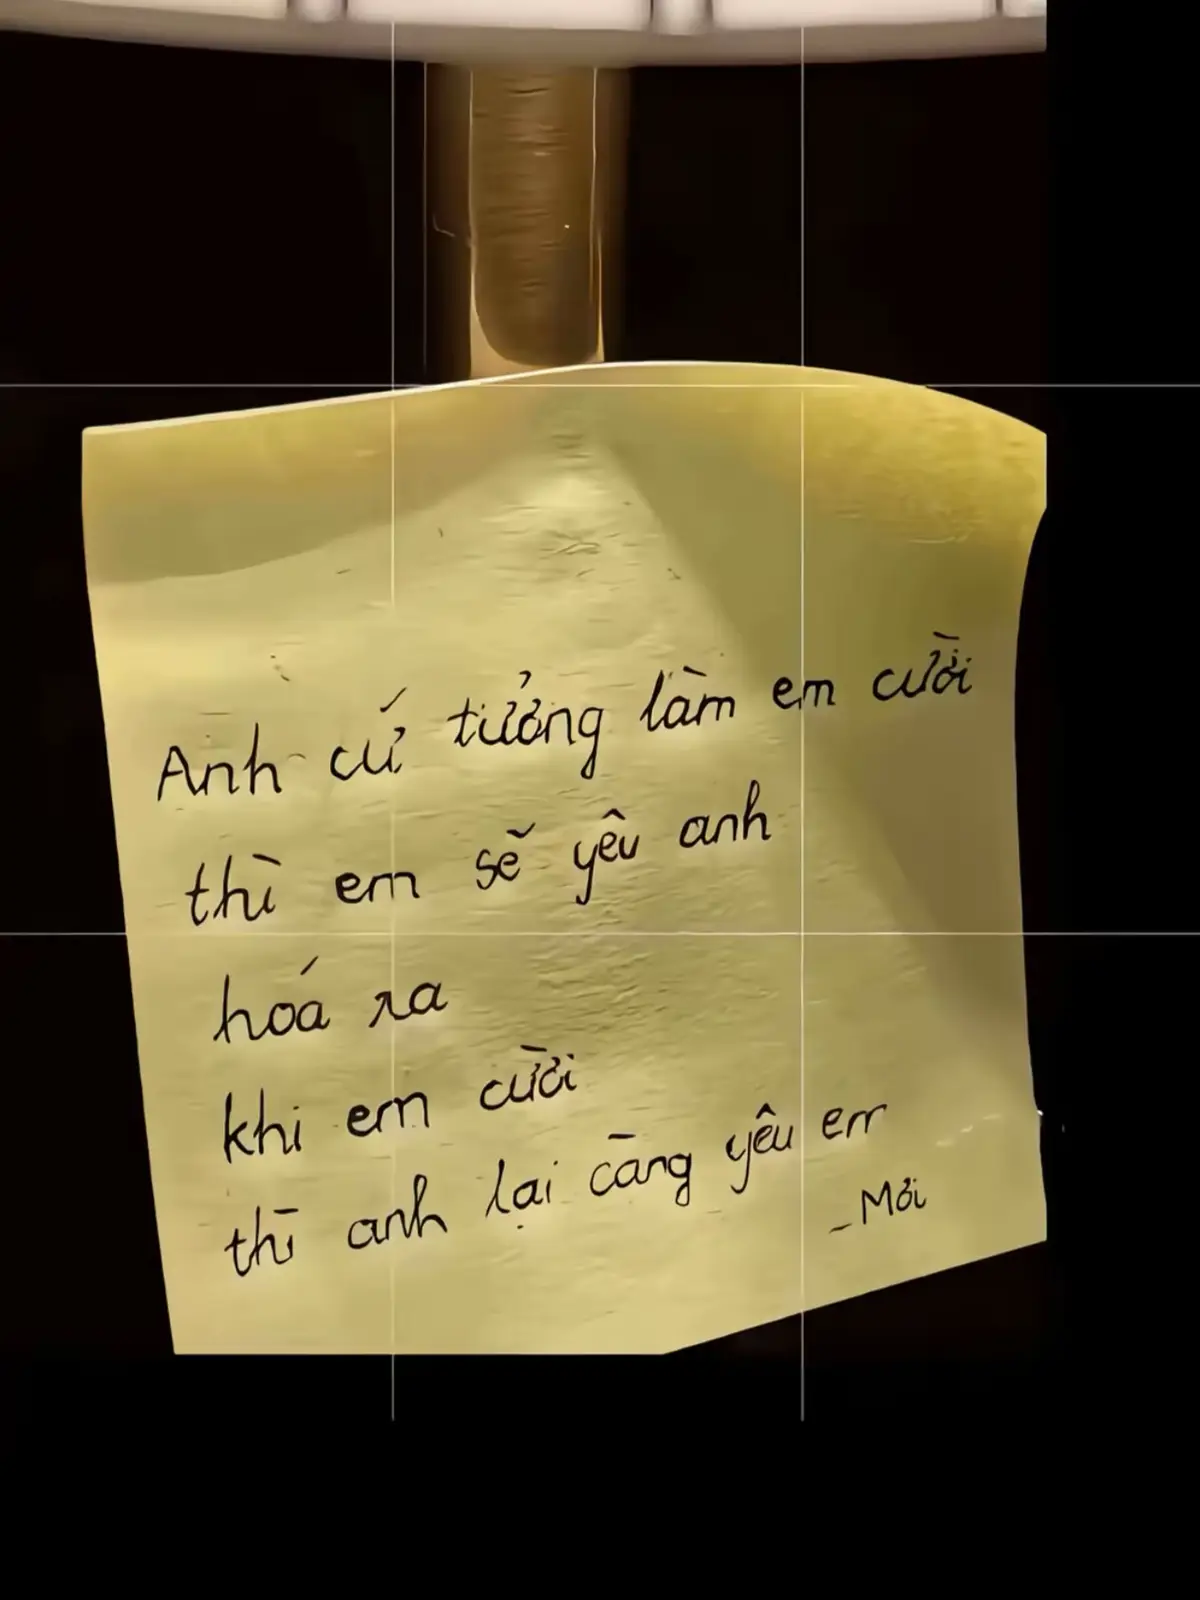 Anh cứ tưởng làm em cười
thì em sẽ yêu anh
hoá ra
khi em cười
thì anh lại càng yêu em